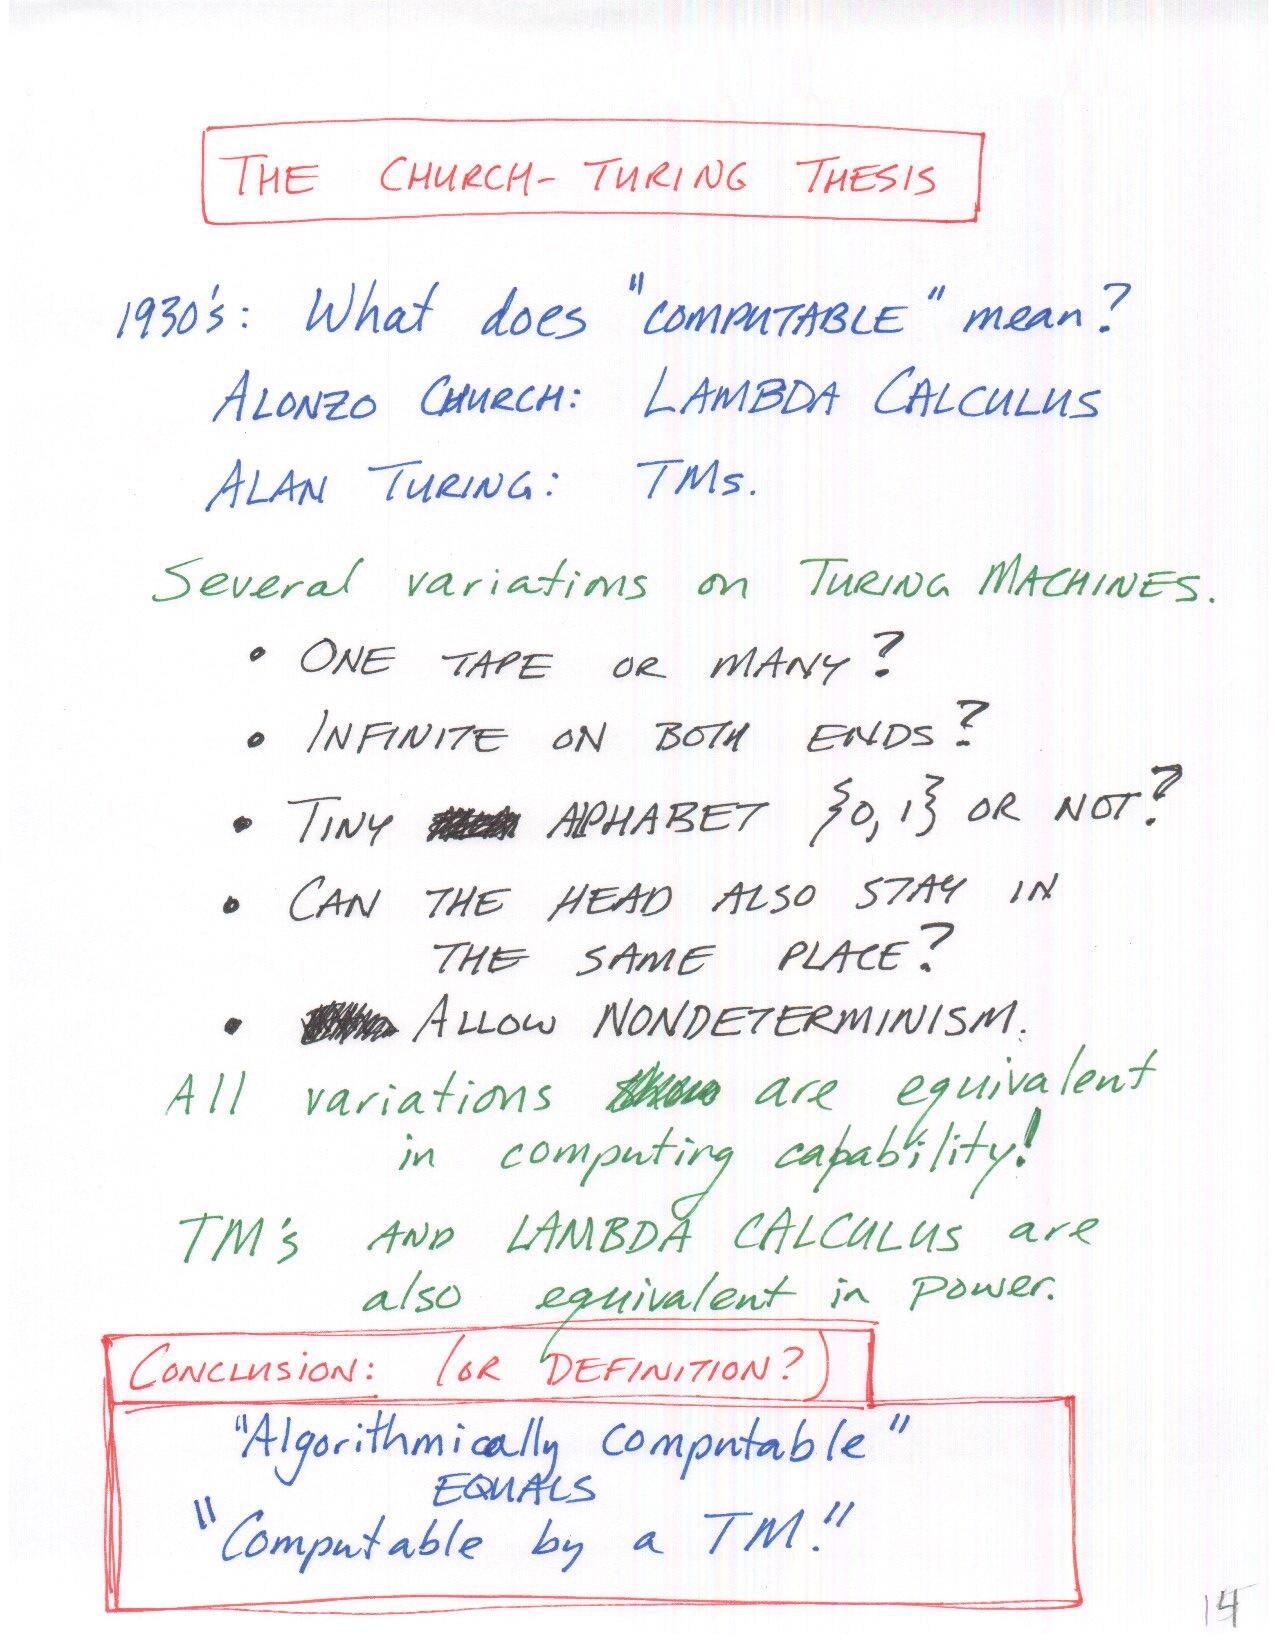 THE CHURCH-TURING THESIS
1930's: What does "COMPUTABLE" mean?
ALONZO CHURCH: LAMBDA CALCULUS
ALAN TURING: TMs.
Several variations on TURING MACHINES.
• ONE TAPE OR MANY?
• INFINITE ON BOTH ENDS?
• TINY ALPHABET {0,1} OR NOT?
• CAN THE HEAD ALSO STAY IN
THE SAME PLACE?
• ALLOW NONDETERMINISM.
All variations are equivalent
in computing capability!
TM's AND LAMBDA CALCULUS are
also equivalent in power.
CONCLUSION: (OR DEFINITION?)
"Algorithmically computable"
EQUALS
"Computable by a TM."
14